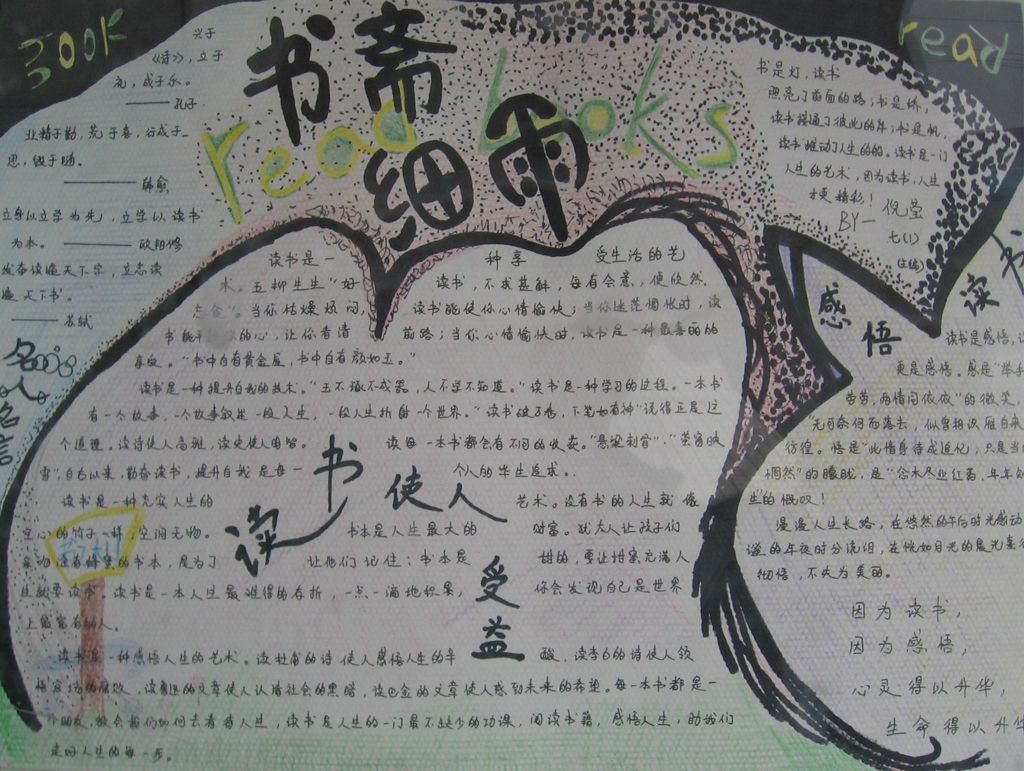 BOOK
read
read books
书斋
细雨
兴于
《诗》,立于
礼,成于乐。
——孔子
业精于勤,荒于喜,行成于
思,毁于随。
——韩愈
立身以立学为先,立学以读书
为本。——欧阳修
发奋识遍天下字,立志读
遍天下书。
——苏轼
名人名言
书是灯,读书
照亮了前面的路;书是桥,
读书接通了彼此的岸;书是帆,
读书推动了人生的船。读书是一门
人生的艺术,因为读书,人生
才更精彩!
BY—倪莹
七(1)
读书是一种享受生活的艺
术。五柳先生“好读书,不求甚解,每有会意,便欣然
忘食”。当你枯燥烦闷,读书能使你心情愉快;当你迷茫惆怅时,读
书能平你的心,让你看清前路;当你心情愉快时,读书是一种最喜的的
享受。“书中自有黄金屋,书中自有颜如玉。”
读书是一种提升自我的艺术。“玉不琢不成器,人不学不知道。”读书是一种学习的过程。一本书
有一个故事,一个故事叙述一段人生,一段人生折射一个世界。“读书破万卷,下笔如有神”说得正是这
个道理。读诗使人高雅,读史使人明智。读每一本书都会有不同的收获。“悬梁刺骨”、“萤窗映
雪”,自古以来,勤奋读书,提升自我是每一个人的毕生追求。
读书是一种充实人生的艺术。没有书的人生就像
空心的竹子一样,空洞无物。书本是人生最大的财富。犹太人让孩子们
亲吻涂有蜂蜜的书本,是为了让他们记住:书本是甜的,要让甜蜜充满人
生就要读书。读书是一本人生最难得的存折,一点一滴地积累,你会发现自己是世界
上最富有的人。
读书是一种感悟人生的艺术。读杜甫的诗使人感悟人生的辛酸,读李白的诗使人领
悟官场的腐败,读鲁迅的文章使人认清社会的黑暗,读巴金的文章使人感到未来的希望。每一本书都是一
个朋友,教会我们如何去看待人生,读书是人生的一门最不缺少的功课,阅读书籍,感悟人生,助我们
走好人生的每一步。
读书使人
受益
感悟
读书
读书是感悟,
更是感悟。感是“举手
劳劳,两情同依依”的微笑,
“无可奈何花落去,似曾相识燕归来
彷徨。悟是“此情身待成追忆,只是当
惘然”的朦胧,是
生的慨叹!
漫漫人生长路,在悠然的午后时光感动
谧的午夜时分说泪,在恍如月光的晨光
彻悟,不失为美丽。
因为读书,
因为感悟,
心灵得以升华,
生命得以升华